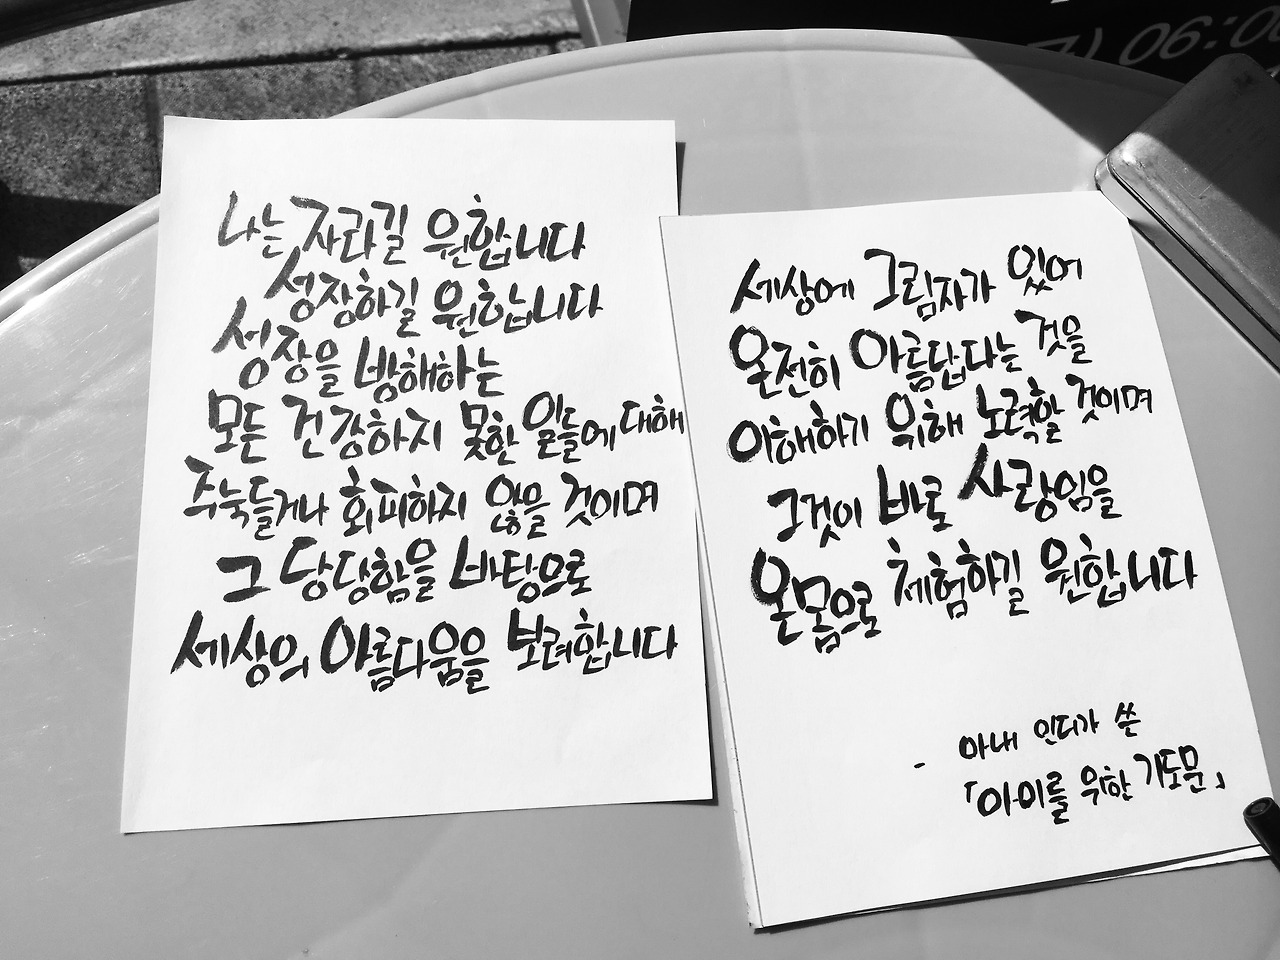 06:0
나는 자라길 원합니다
성장하길 원합니다
성장을 방해하는
모든 건강하지 못한 일들에 대해
주눅들거나 회피하지 않을 것이며
그 당당함을 바탕으로
세상의 아름다움을 보려합니다
세상에 그림자가 있어
온전히 아름답다는 것을
이해하기 위해 노력할 것이며
그것이 바로 사랑임을
온몸으로 체험하길 원합니다
- 아내 인디가 쓴
「아이를 위한 기도문」